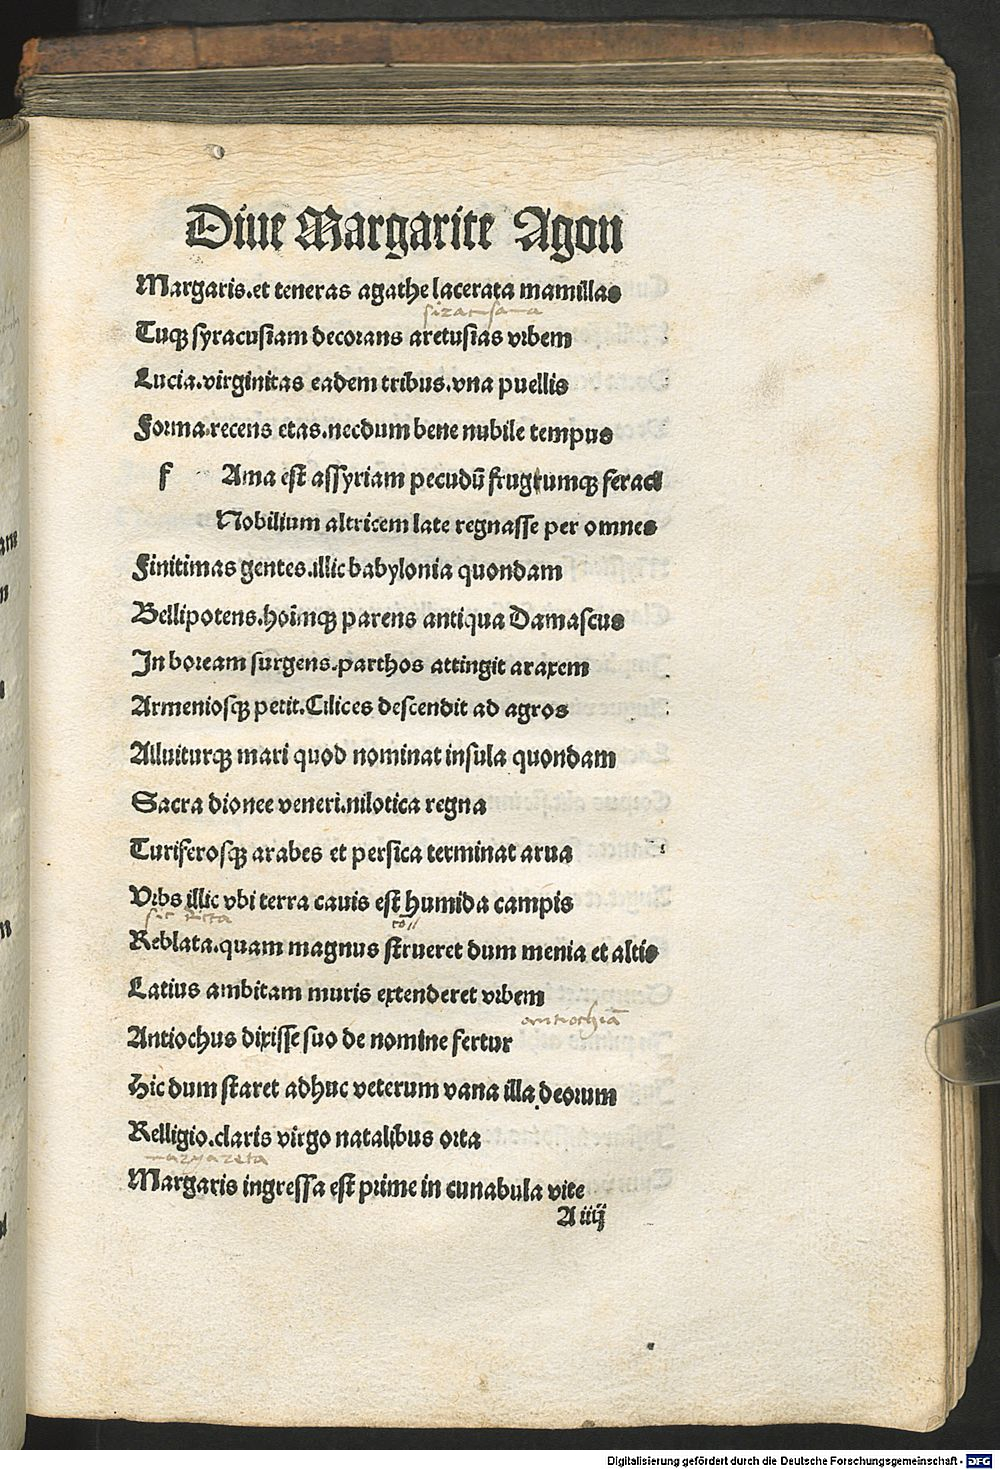 Diue Margarite Agon
Margaris.et teneras agathe lacerata mamillas
sizacusana
Tuqꝫ syracusiam decorans aretusias vrbem
Lucia.virginitas eadem tribus.vna puellis
Forma.recens etas.necdum bene nubile tempus
f Ama est assyriam pecudū frugiumqꝫ feraci
Nobilium altricem late regnasse per omnes
Finitimas gentes.illic babylonia quondam
Bellipotens.hoimqꝫ parens antiqua Damascus
In boream surgens.parthos attingit araxem
Armeniosqꝫ petit.Cilices descendit ad agros
Alluiturqꝫ mari quod nominat insula quondam
Sacra dionee veneri.nilotica regna
Turiferosqꝫ arabes et persica terminat arua
Vrbs illic vbi terra cauis est humida campis
sic dicta
Reblata.quam magnus strueret dum menia et altis
Latius ambitam muris extenderet vrbem
antiochiā
Antiochus dixisse suo de nomine fertur
Hic dum staret adhuc veterum vana illa deorum
Relligio.claris virgo natalibus orta
margareta
Margaris ingressa est prime in cunabula vite
A iiij
Digitalisierung gefördert durch die Deutsche Forschungsgemeinschaft - DFG